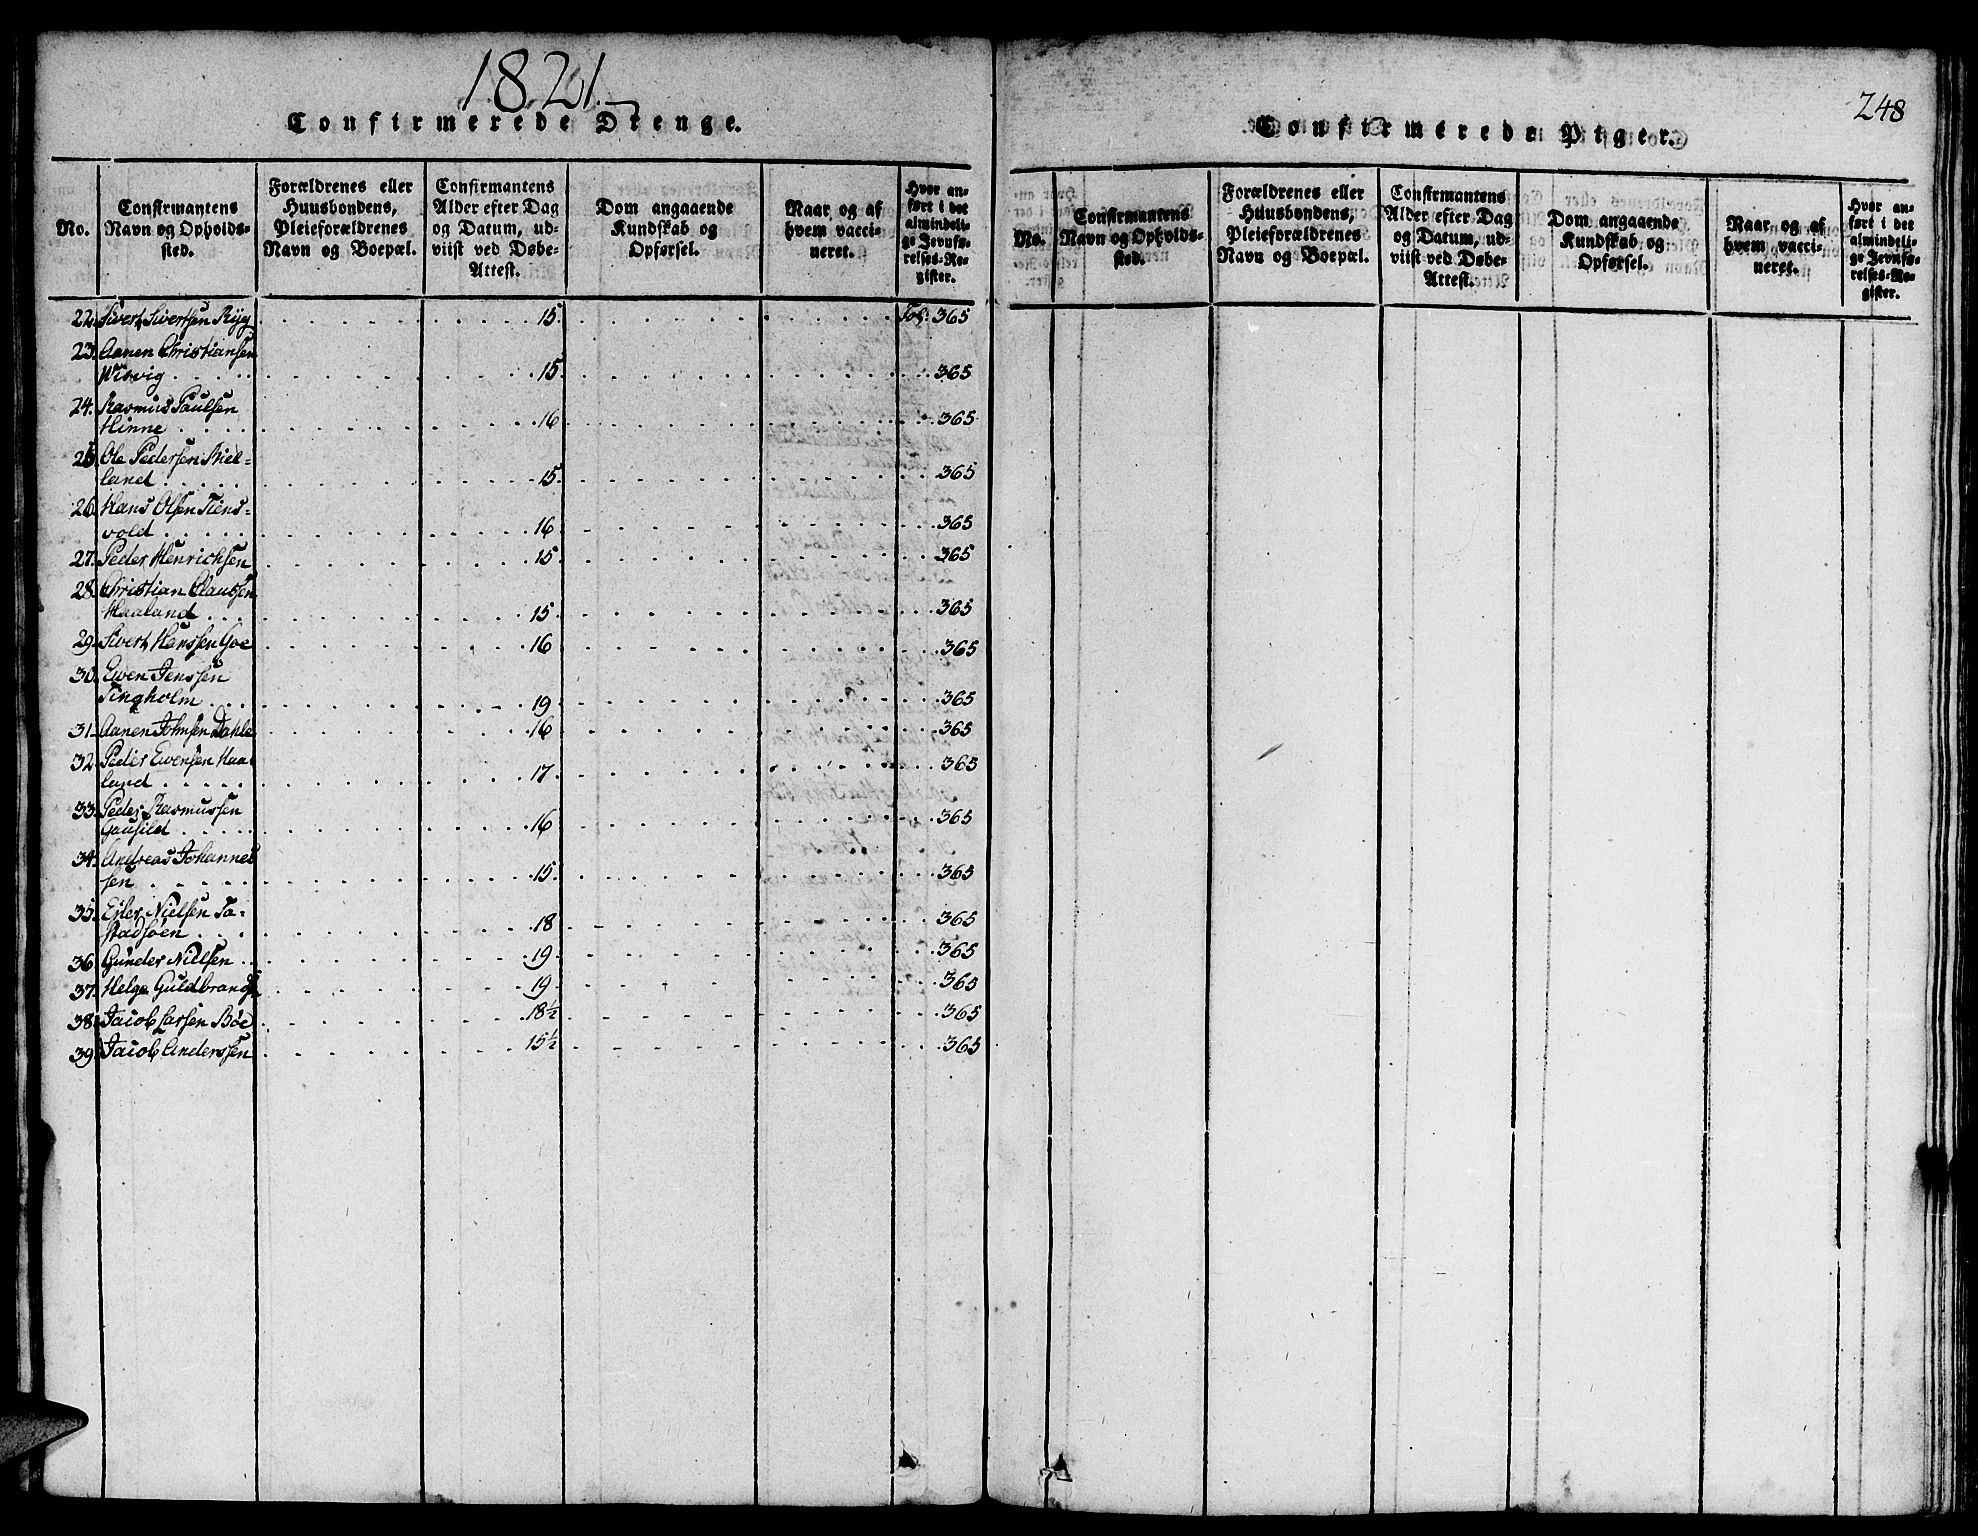 1821.
Confirmerede Drenge.
No.
Confirmantens
Navn og Opholds-
sted.
Forældrenes eller
Huusbondens,
Pleieforældrenes
Navn og Boepæl.
Confirmantens
Alder efter Dag
og Datum, ud-
viist ved Døbe-
Attest.
Dom angaaende
Kundskab og
Opførsel.
Naar og af
hvem vacci-
neret.
Hvor an-
ført i det
almindeli-
ge Jevnfø-
relses-Re-
gister.
22. Sivert Sivertsen Ryg 15. Fol: 365
23. Aanen Christiansen
Wisvig 15 365
24. Rasmus Paulsen
Hinne 16 365
25 Ole Pedersen Biel-
land 15 365
26. Hans Olsen Tiens-
vold 16 365
27. Peder Henrichsen 15 365
28. Christian Clausen
Haaland 15 365
29. Sivert Hanssen Goe 16 365
30. Ewen Jenssen
Tingholm 19 365
31. Aanen Johnsen Dahle 16 365
32. Peder Ewensen Haa-
land 17 365
33. Peder Rasmussen
Gausild 16 365
34. Andreas Johannes
sen 15 365
35. Eiler Nielsen Ta-
stadsøen 18 365
36. Gunder Nielsen 19 365
37. Helge Guldbrands 19 365
38. Jacob Larsen Bøe 18½ 365
39. Jacob Anderssen 15½ 365
248
Confirmerede Piger.
No.
Confirmantens
Navn og Opholds-
sted.
Forældrenes eller
Huusbondens,
Pleieforældrenes
Navn og Boepæl.
Confirmantens
Alder efter Dag
og Datum, ud-
viist ved Døbe-
Attest.
Dom angaaende
Kundskab og
Opførsel.
Naar og af
hvem vacci-
neret.
Hvor an-
ført i det
almindeli-
ge Jevnfø-
relses-Re-
gister.